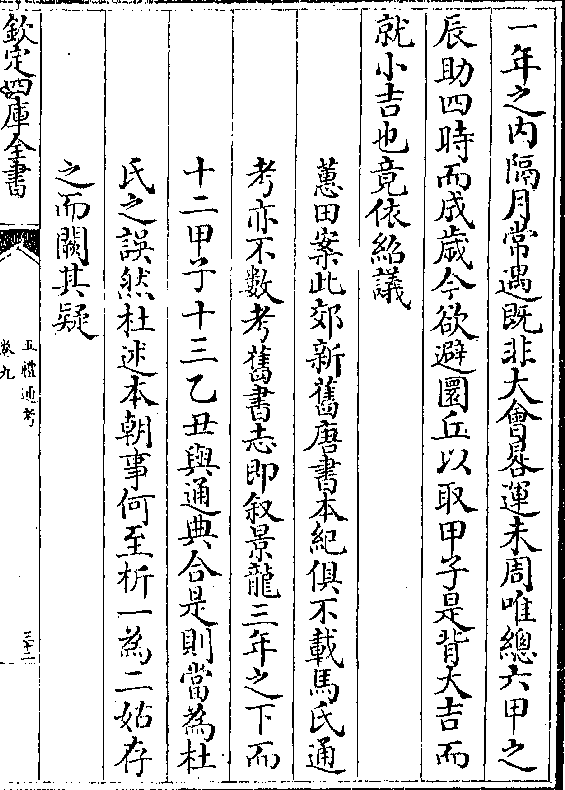 一年之内隔月常遇既非大會晷運未周唯總六甲之
辰助四時而成歳今欲避圜丘以取甲子是背大吉而
就小吉也竟依紹議
蕙田案此郊新舊唐書本紀俱不載馬氏通
考亦不數考舊書志即叙景龍三年之下而
十二甲子十三乙丑與通典合是則當為杜
氏之誤然杜述本朝事何至析一為二姑存
之而闕其疑
欽定四庫全書
五禮通考
卷九
三十二